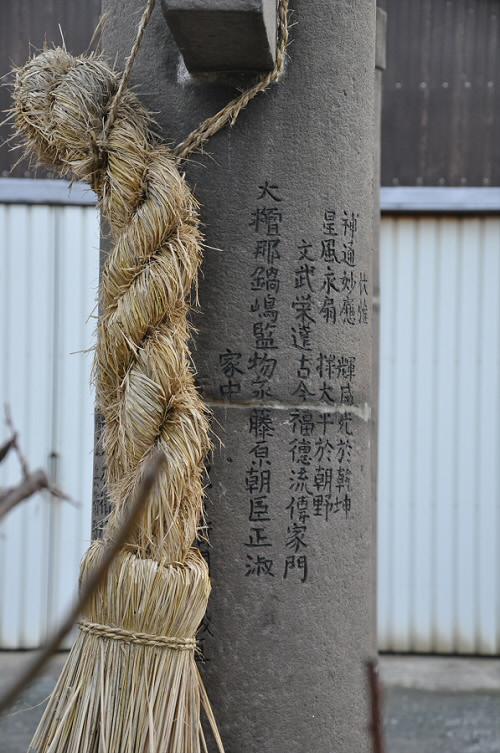 伏惟
神通妙應 輝威光於乾坤
皇風永扇 択太平於朝野
文武栄達古今福德流傳家門
大檀那鍋嶋監物丞藤原朝臣正淑
家中